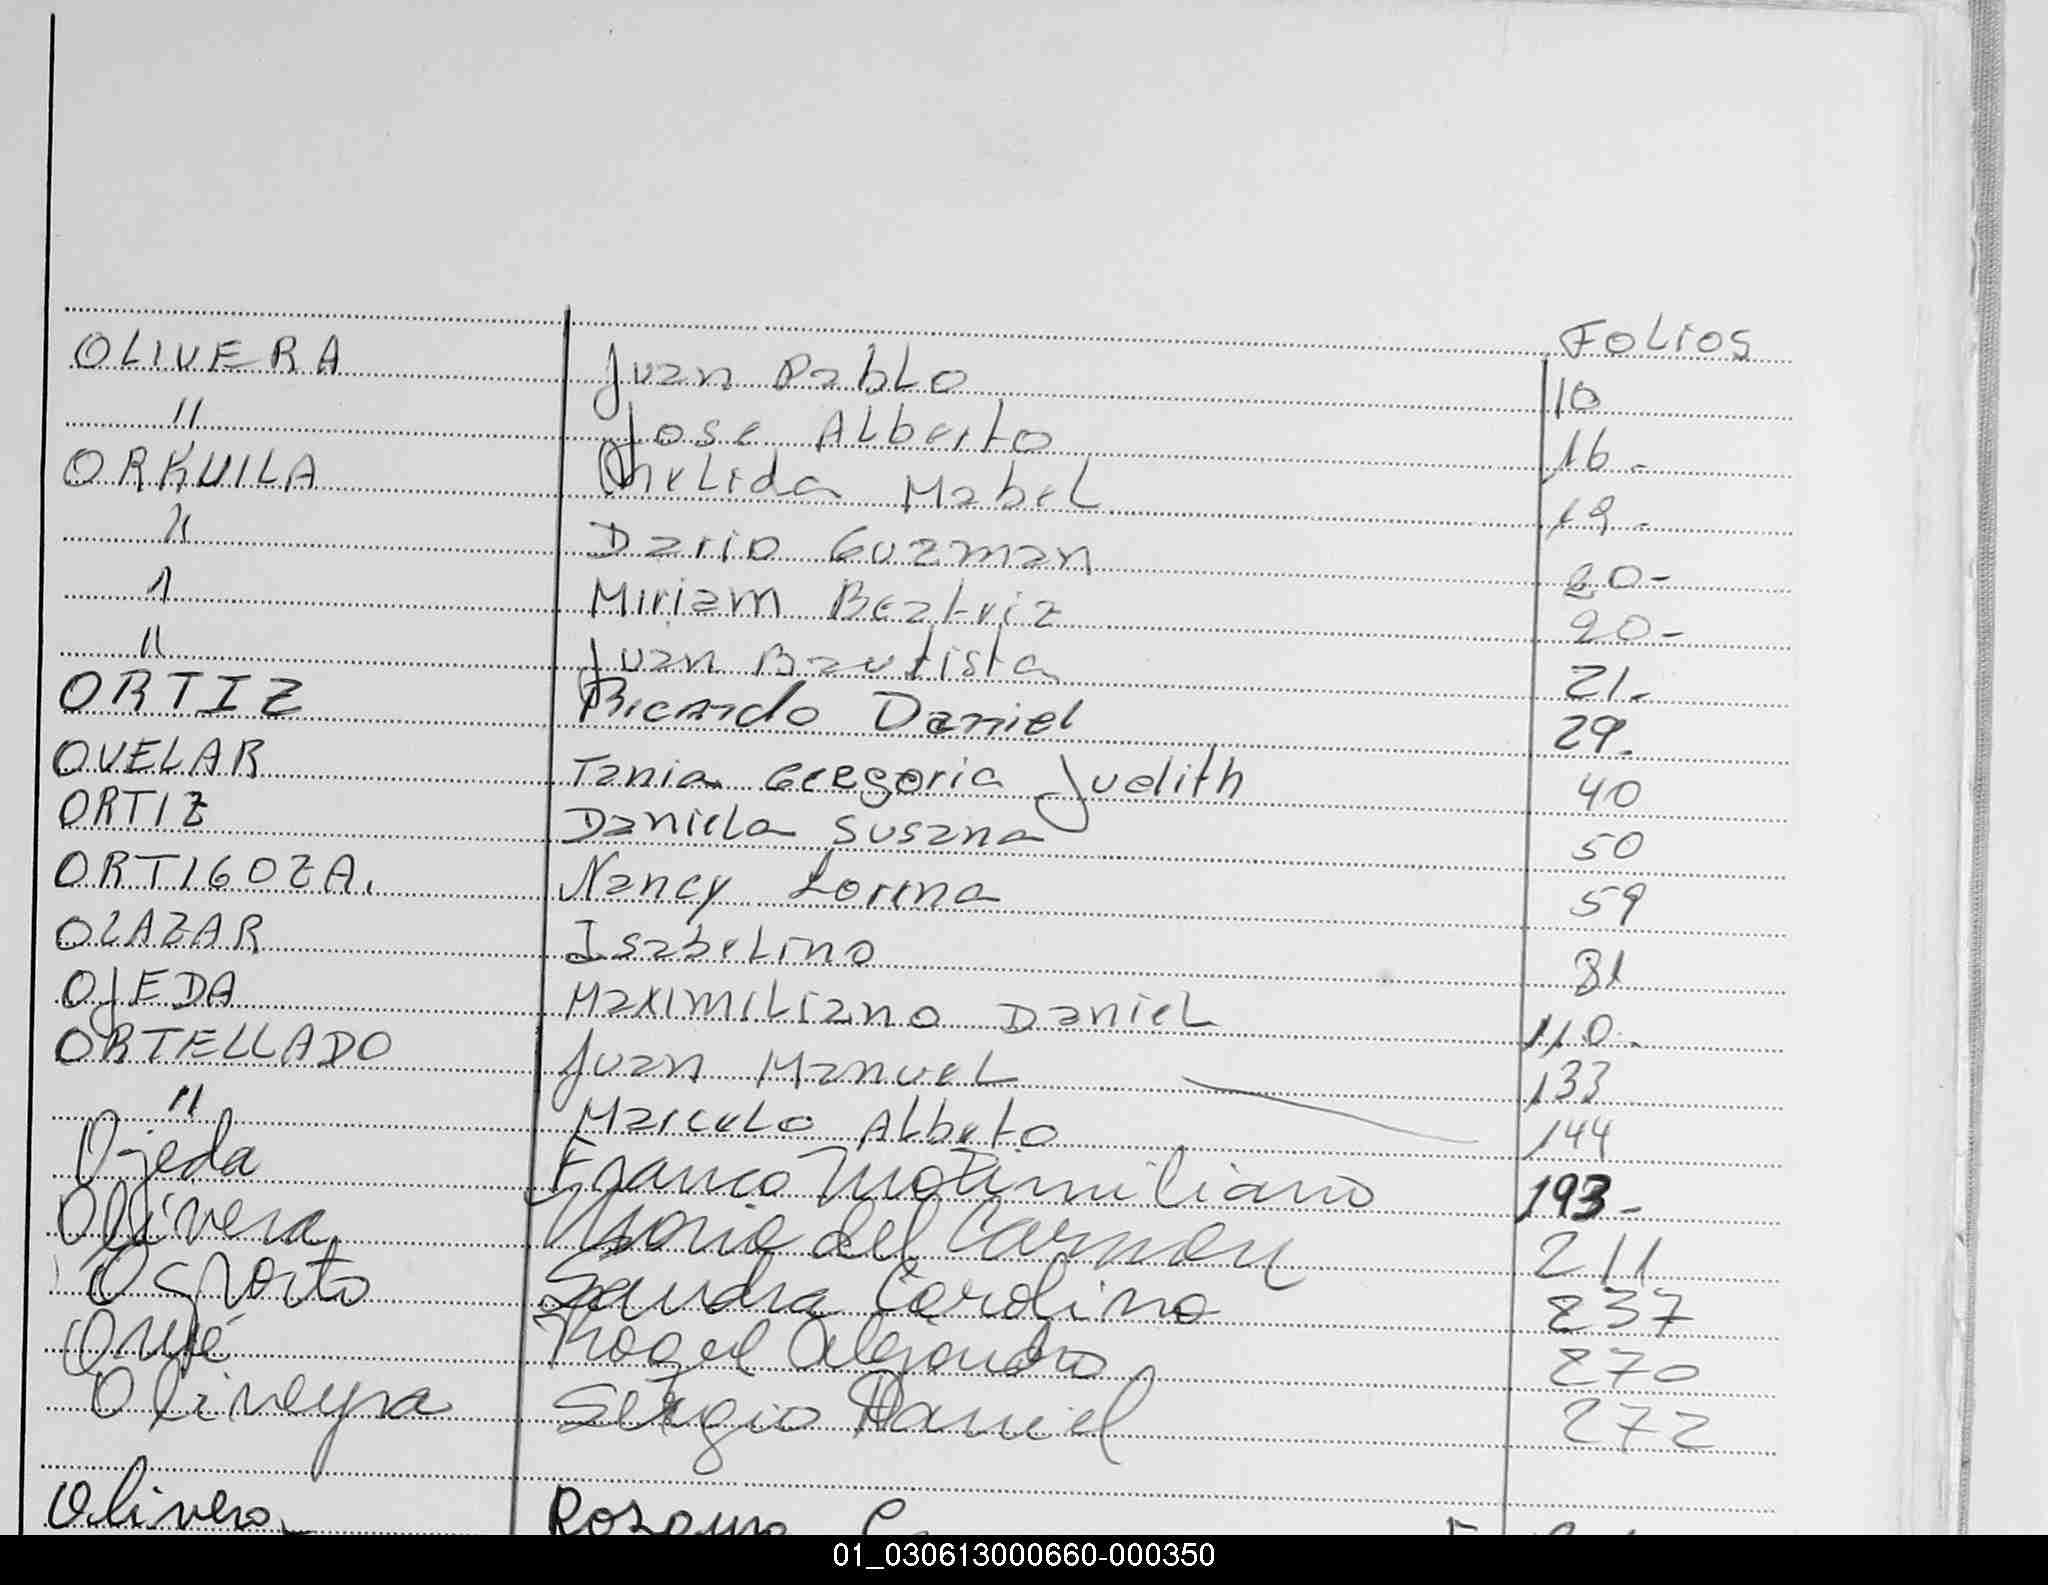 FOLIOS
OLIVERA Juan Pablo 10
" Jose Alberto 16-
ORKUILA Mabel 19-
" Dario Guzman 20-
" Miriam Beatriz 20-
" Juan Bautista 21-
ORTIZ Ricardo Daniel 29-
OVELAR Tania Gregoria Judith 40
ORTIZ Daniela Susana 50
ORTIGOZA. Nancy Lorena 59
OLAZAR Isabelino 81
OJEDA Maximiliano Daniel 110-
ORTELLADO Juan Manuel 133
" Marcelo Alberto 144
Ojeda Franco 193-
Olivera Maria del Carmen 211
Sandra Carolina 237
Alejandro 270
Oliveyra Sergio Daniel 272
Olivero
01_030613000660-000350